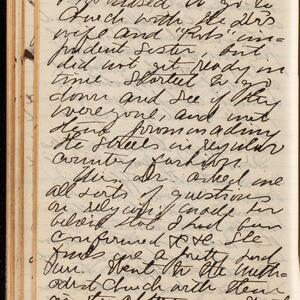 to go to
Church with the Drs
wife and "Kids" im-
pudent sister, but
did not get ready in
time. Started to go
down and see if they
were gone, and met
them promenading
the streets in regular
country fashion.
The Dr. asked me
all sorts of questions
on religion, made her
believe that I had been
confirmed
me a
Went to the Meth-
odist Church with them